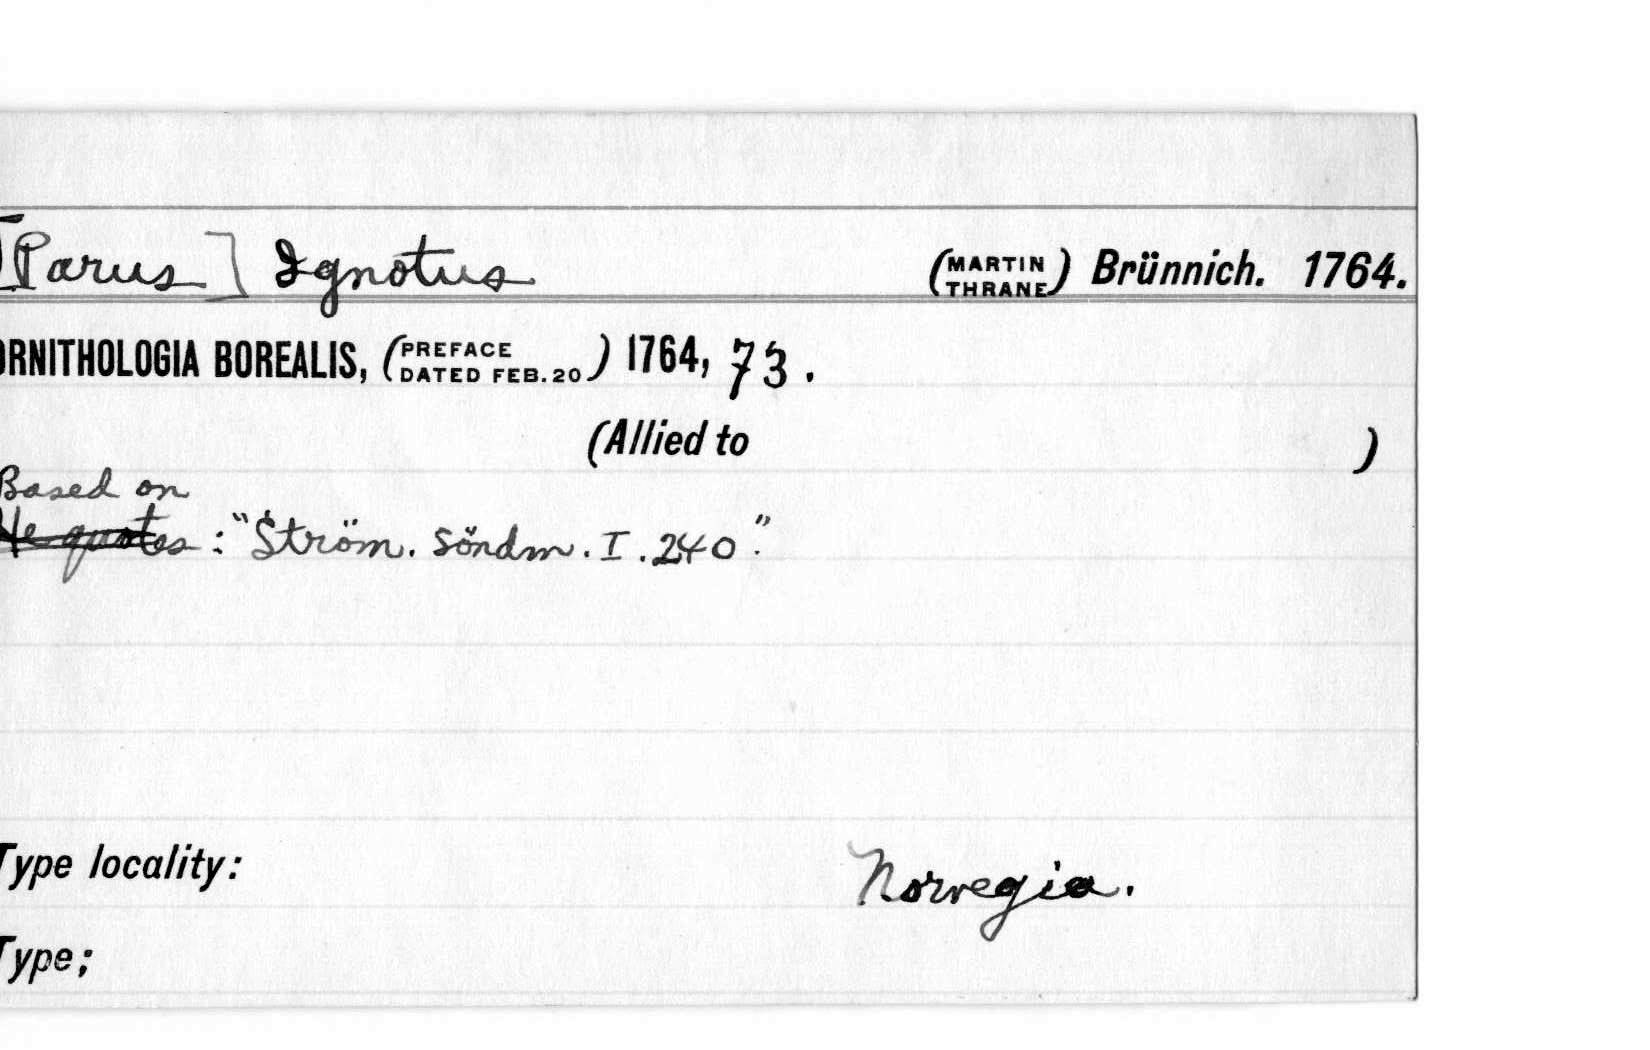 [Parus] Ignotus (MARTIN THRANE) Brünnich. 1764.
ORNITHOLOGIA BOREALIS, (PREFACE DATED FEB. 20) 1764, 73.
(Allied to )
Based on
He quotes : "Ström. Söndm. I. 240".
Type locality: Norvegia.
Type;